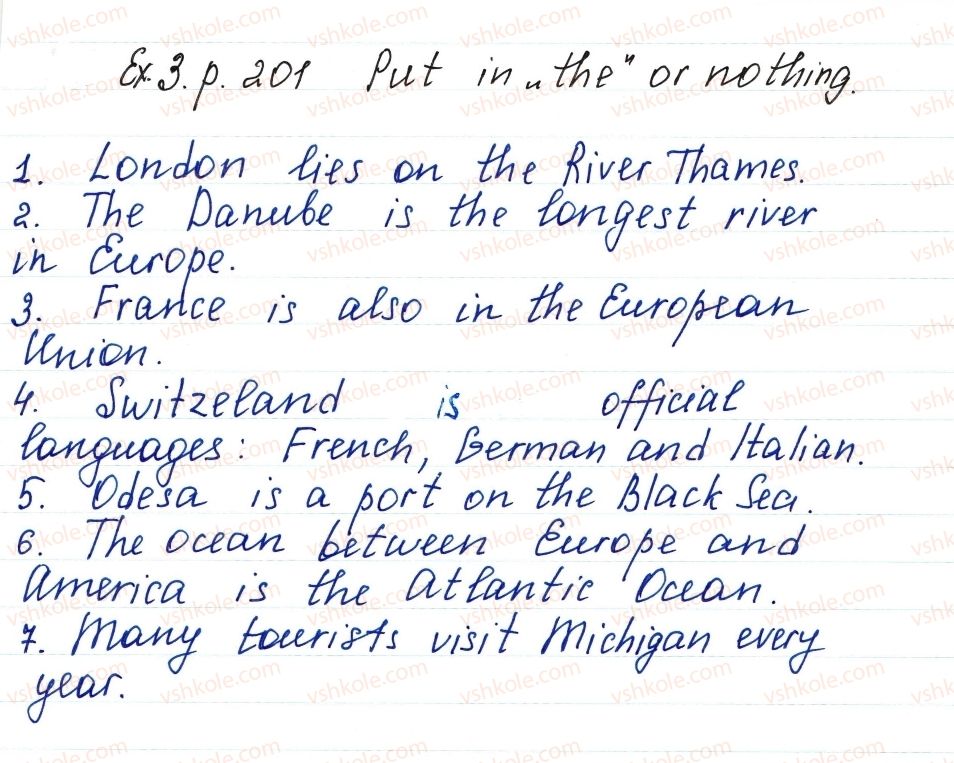 Ex. 3. p. 201 Put in „the" or nothing.
1. London lies on the River Thames.
2. The Danube is the longest river
in Europe.
3. France is also in the European
Union.
4. Switzeland is official
languages: French, German and Italian.
5. Odesa is a port on the Black Sea.
6. The ocean between Europe and
America is the Atlantic Ocean.
7. Many tourists visit Michigan every
year.
vshkole.com